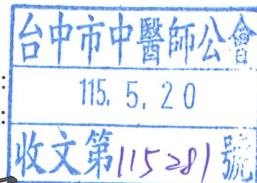 台中市中醫師公會
115. 5. 20
收文第115281號